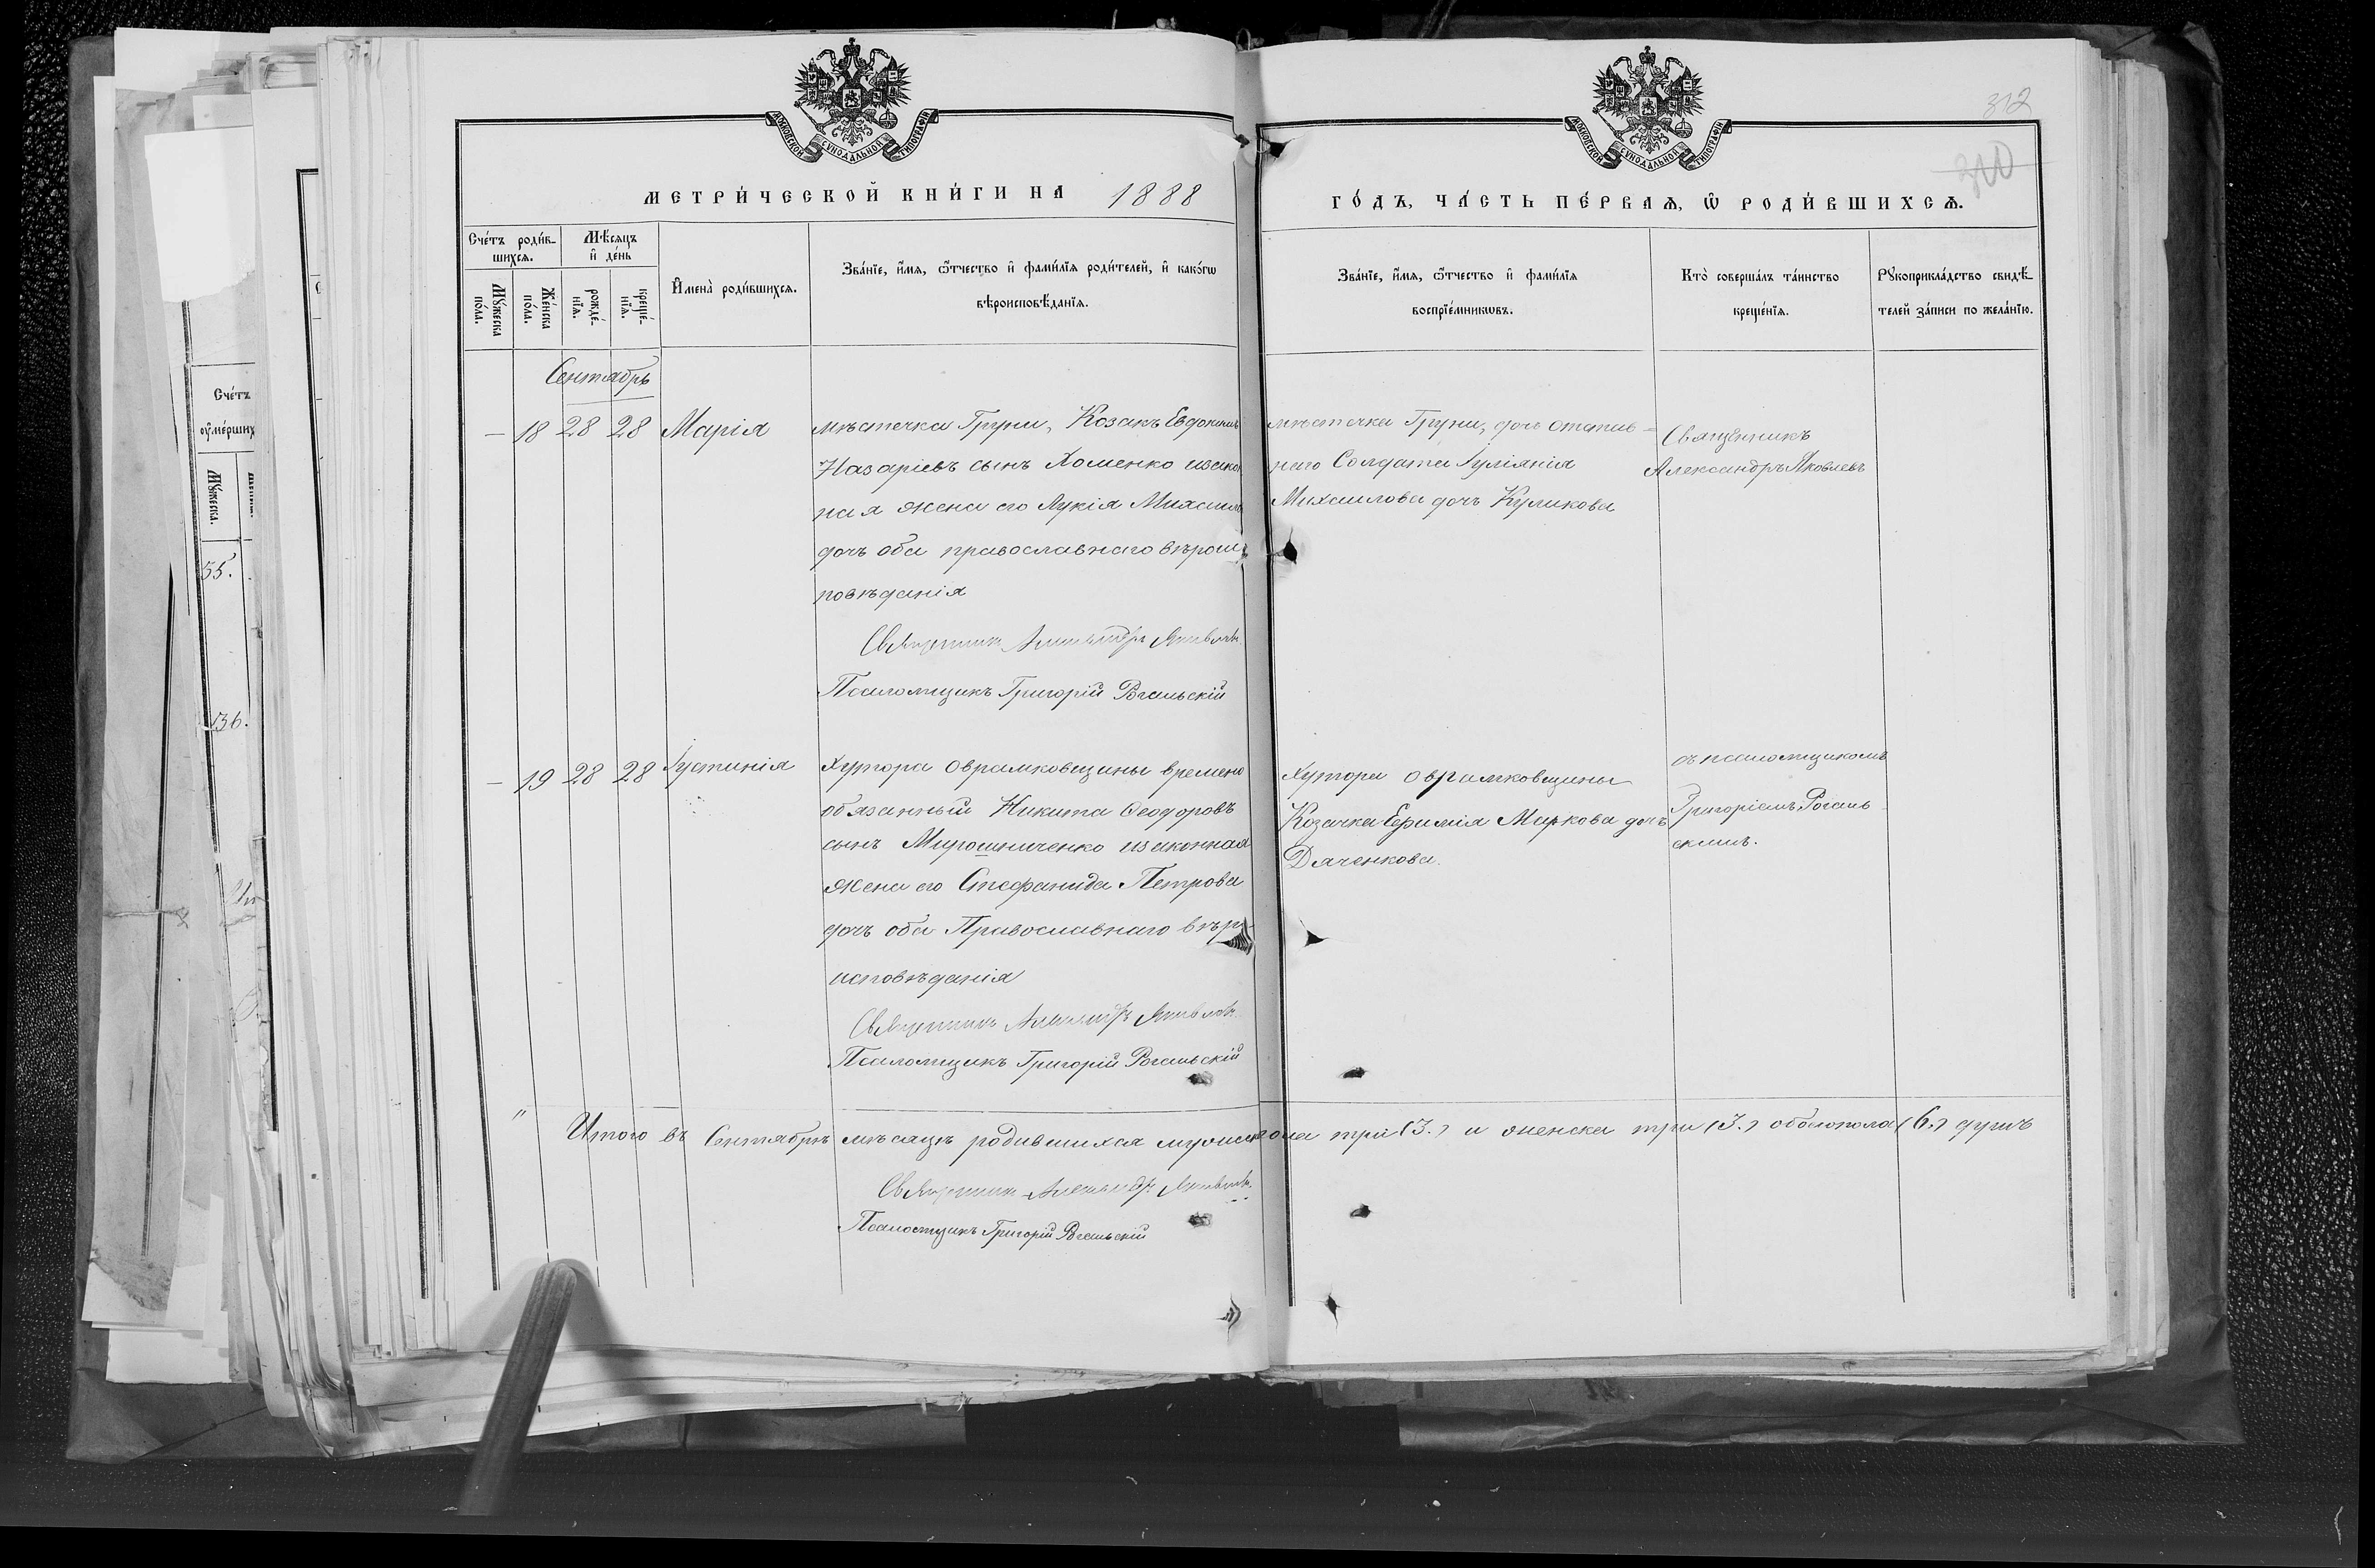 312
310
МОСКОВСКОЙ СѴНОДАЛЬНОЙ ТИПОГРАФІИ
МОСКОВСКОЙ СѴНОДАЛЬНОЙ ТИПОГРАФІИ
МЕТРИ́ЧЕСКОЙ КНИ́ГИ НА 1888
ГО́ДЪ, ЧА́СТЬ ПЕ́РВАѦ, Ѡ РОДИ́ВШИХСѦ.
Сче́тъ роди́в-
шихсѧ.
Мꙋ́жеска
по́ла.
Же́нска
по́ла.
Мѣ́сѧцъ
и҆ де́нь
рожде́-
нїѧ.
креще́-
нїѧ.
И҆мена̀ роди́вшихсѧ.
Зва́нїе, и҆́мѧ, ѻ҆́тчество и҆ фами́лїѧ роди́телей, и҆ како́гѡ
вѣроисповѣ́данїѧ.
Зва́нїе, и҆́мѧ, ѻ҆́тчество и҆ фами́лїѧ
воспрїе́мникѡвъ.
Кто̀ соверша́лъ та́инство
креще́нїѧ.
Рꙋкоприкла́дство свидѣ́-
телей за́писи по жела́нїю.
Сче́тъ
ᲂу҆ме́рших
Мꙋ́жеска.
35.
36.
Сентябрь
— 18 28 28 Марія
мѣстечка Груни, Козакъ Евдокимъ
Назаріевъ сынъ Хоменко изакон
ная жена его Лукія Михаил
дочъ оба православнаго вѣроис
повѣданія
Священник Александръ Яковлевъ
Псаломщикъ Григорій Рогальскій
мѣстечка Груни, дочъ отстав=
наго Солдата Іуліанія
Михаилова дочъ Куликова
Священникъ
Александръ Яковлевъ
— 19 28 28 Іустинія
Хутора Оврамковщины времено
обязанный Никита Ѳеодоровъ
сынъ Мирошниченко изаконная
жена его Стефанида Петрова
дочъ оба Православнаго вѣро-
исповѣданія
Священникъ Александръ Яковлевъ
Псаломщикъ Григорій Рогальскій
Хутора Оврамковщины
Козачка Ефимія Маркова дочъ
Дяченкова.
съ псаломщикомъ
Григоріемъ Рогаль
скимъ.
" Итого въ Сентябрѣ мѣсяцѣ родившихся мужескапола три (3.) и женска три (3.) обоегопола (6.) душъ
Священник Александръ Яковлевъ
Псаломщикъ Григорій Рогальскій